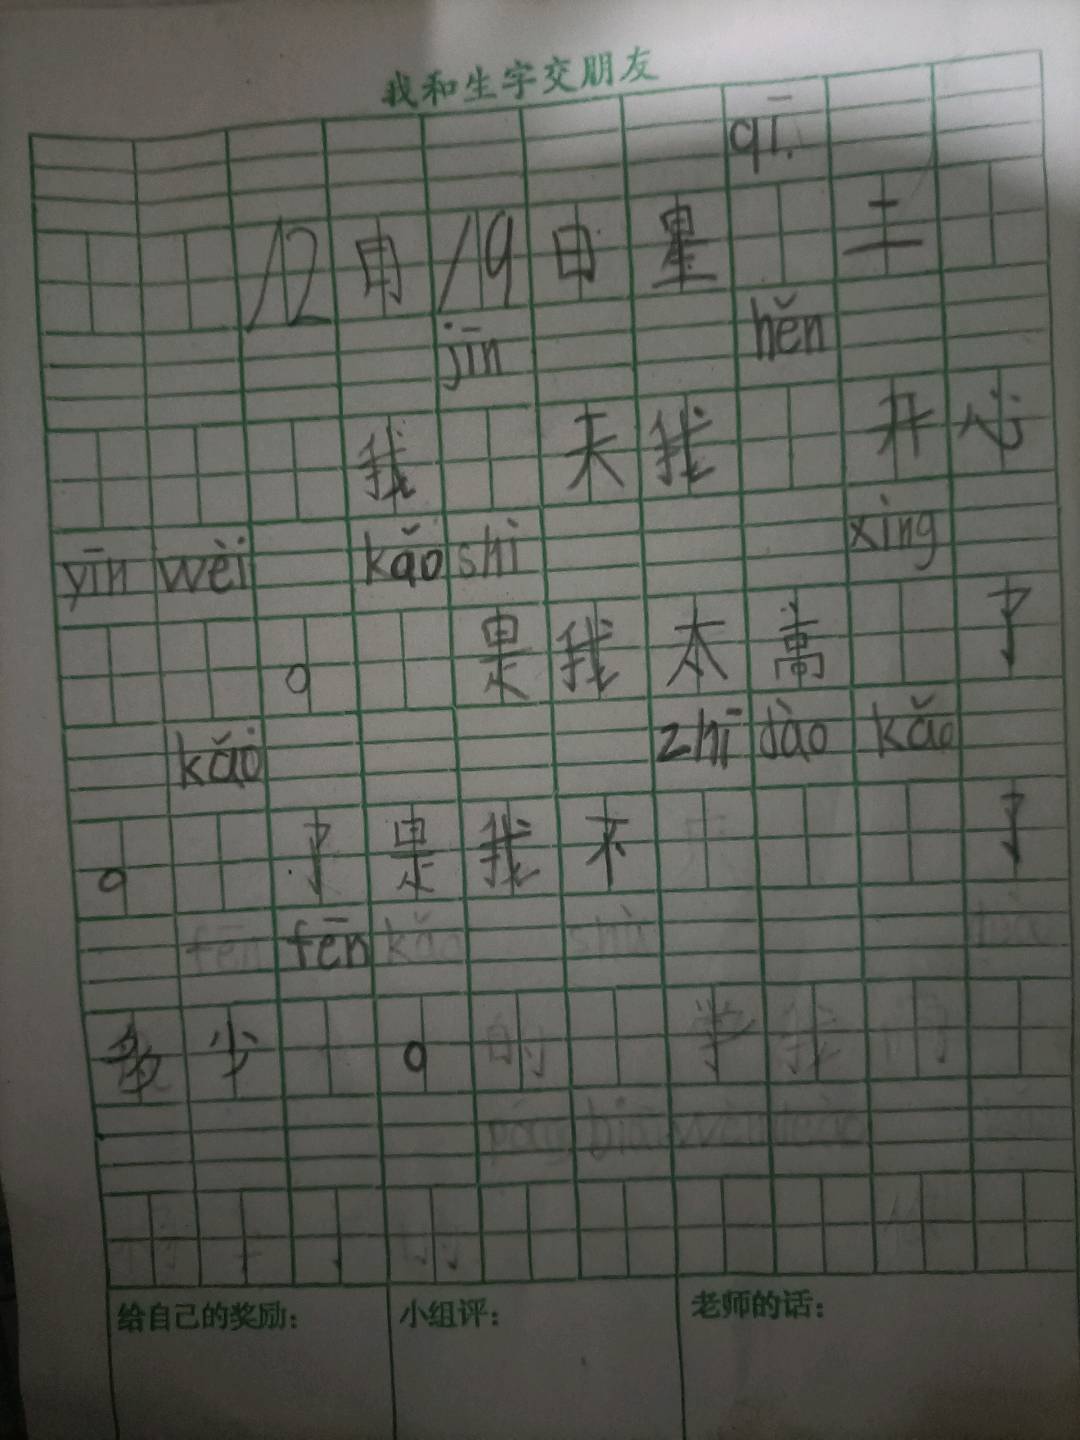 我和生字交朋友
qī
12月19日星 三
jīn hěn
我 天我 开心
yīn wèi kǎo shì xìng
。 是我太高 了
kǎo zhī dào kǎo
。 了是我不 了
fēn fēn kǎo
多少 。 的 学我
给自己的奖励： 小组评： 老师的话：